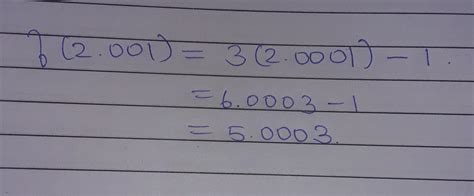 f(2.001) = 3(2.0001) - 1.
= 6.0003 - 1
= 5.0003.